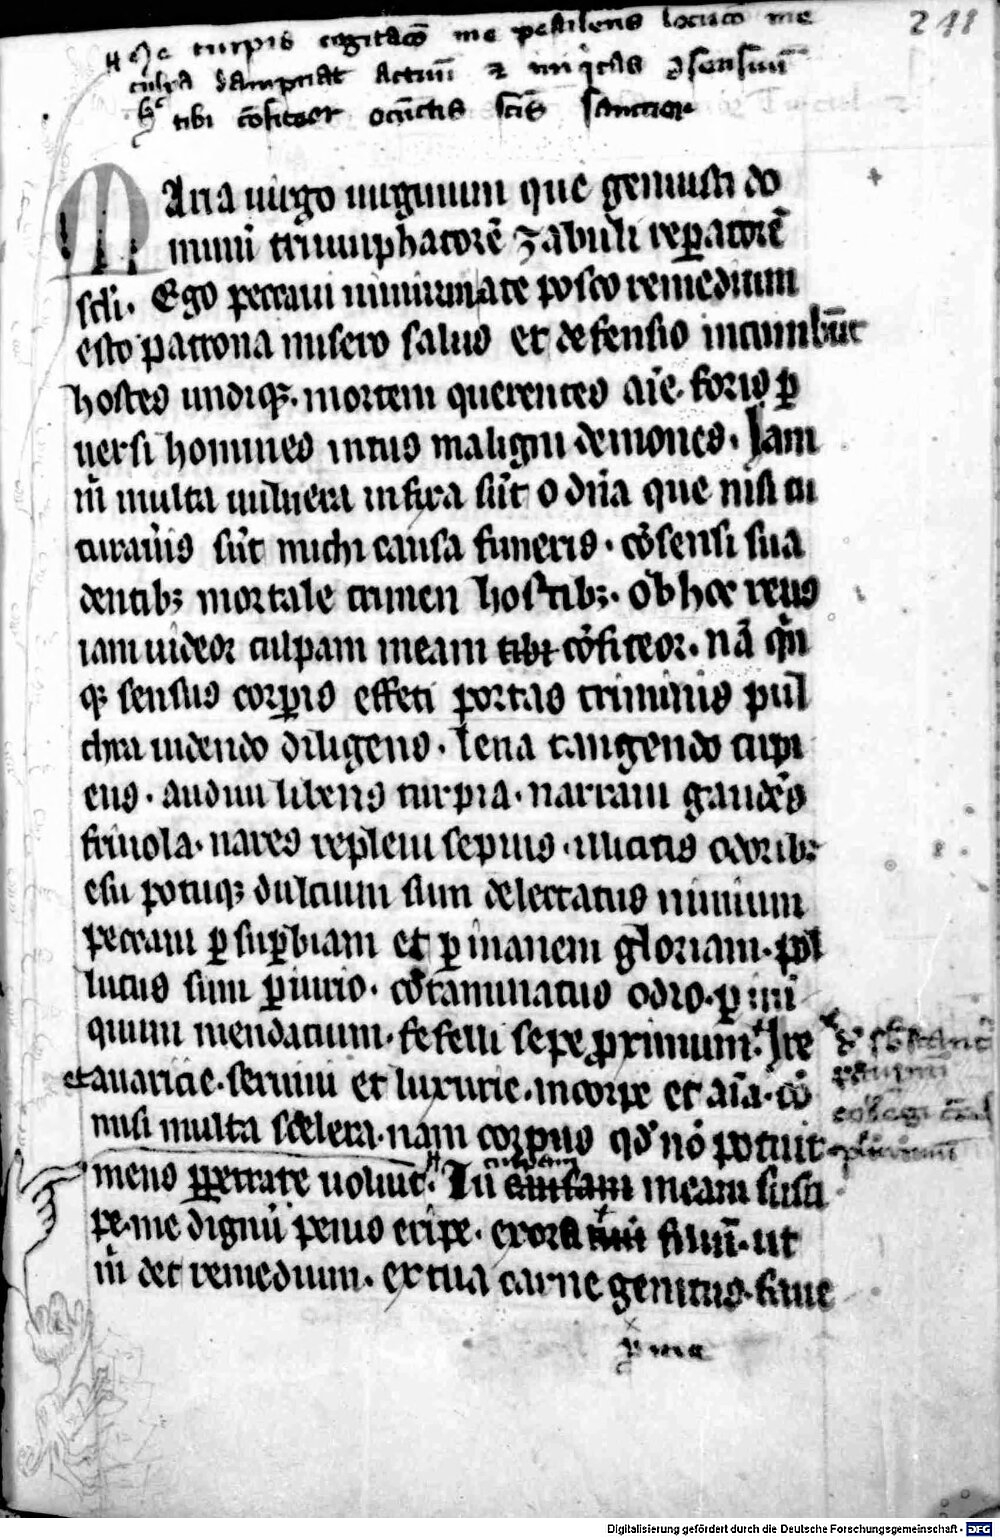 241
me turpis cogitacō me pestilens locucō me
culpa dampnat actuū
tibi cōfiteor scīs
Maria uirgo uirginum que genuisti do
minū triumphatorē zabuli rep̄atorē
scl̄i. Ego peccaui nimium a te posco remedium
esto patrona misero salus et defensio incumbūt
hostes undiqꝫ. mortem querentes aīe. foris ꝑ
uersi homines intus maligni demones. Iam
m̄ multa uulnera infixa sūt o dn̄a que nisi tu
curaūis sūt michi causa funeris. cōsensi sua
dentibꝫ mortale crimen hostibꝫ. Ob hoc reus
iam uideor culpam meam tibi cōfiteor. nā q̄n
qꝫ sensus corꝑis effeci portas criminis pul
chra uidendo diligens. lena tangendo cupi
ens. audiui libens turpia. narraui gaudēs
friuola. nares repleui sepius. illicitis odoribꝫ
esu potuqꝫ dulcium sum delectatus nimium
peccaui ꝑ suꝑbiam et ꝑ inanem gloriam. pol
lutus sum ꝑiurio. cōtaminatus odio. ꝑ ini
quum mendacium. fefelli sepe ꝓximum. Ire
et auaricie. seruiui et luxurie. in corpe et aīa. cō
misi multa scelera. nam corpus qd̄ nō potuit
mens ꝑpetrare uoluit. Tu culpam causam meam susci
pe. me dignū penis eripe. exora filiū. ut
m̄ det remedium. ex tua carne genitus. faue
Digitalisierung gefördert durch die Deutsche Forschungsgemeinschaft - DFG